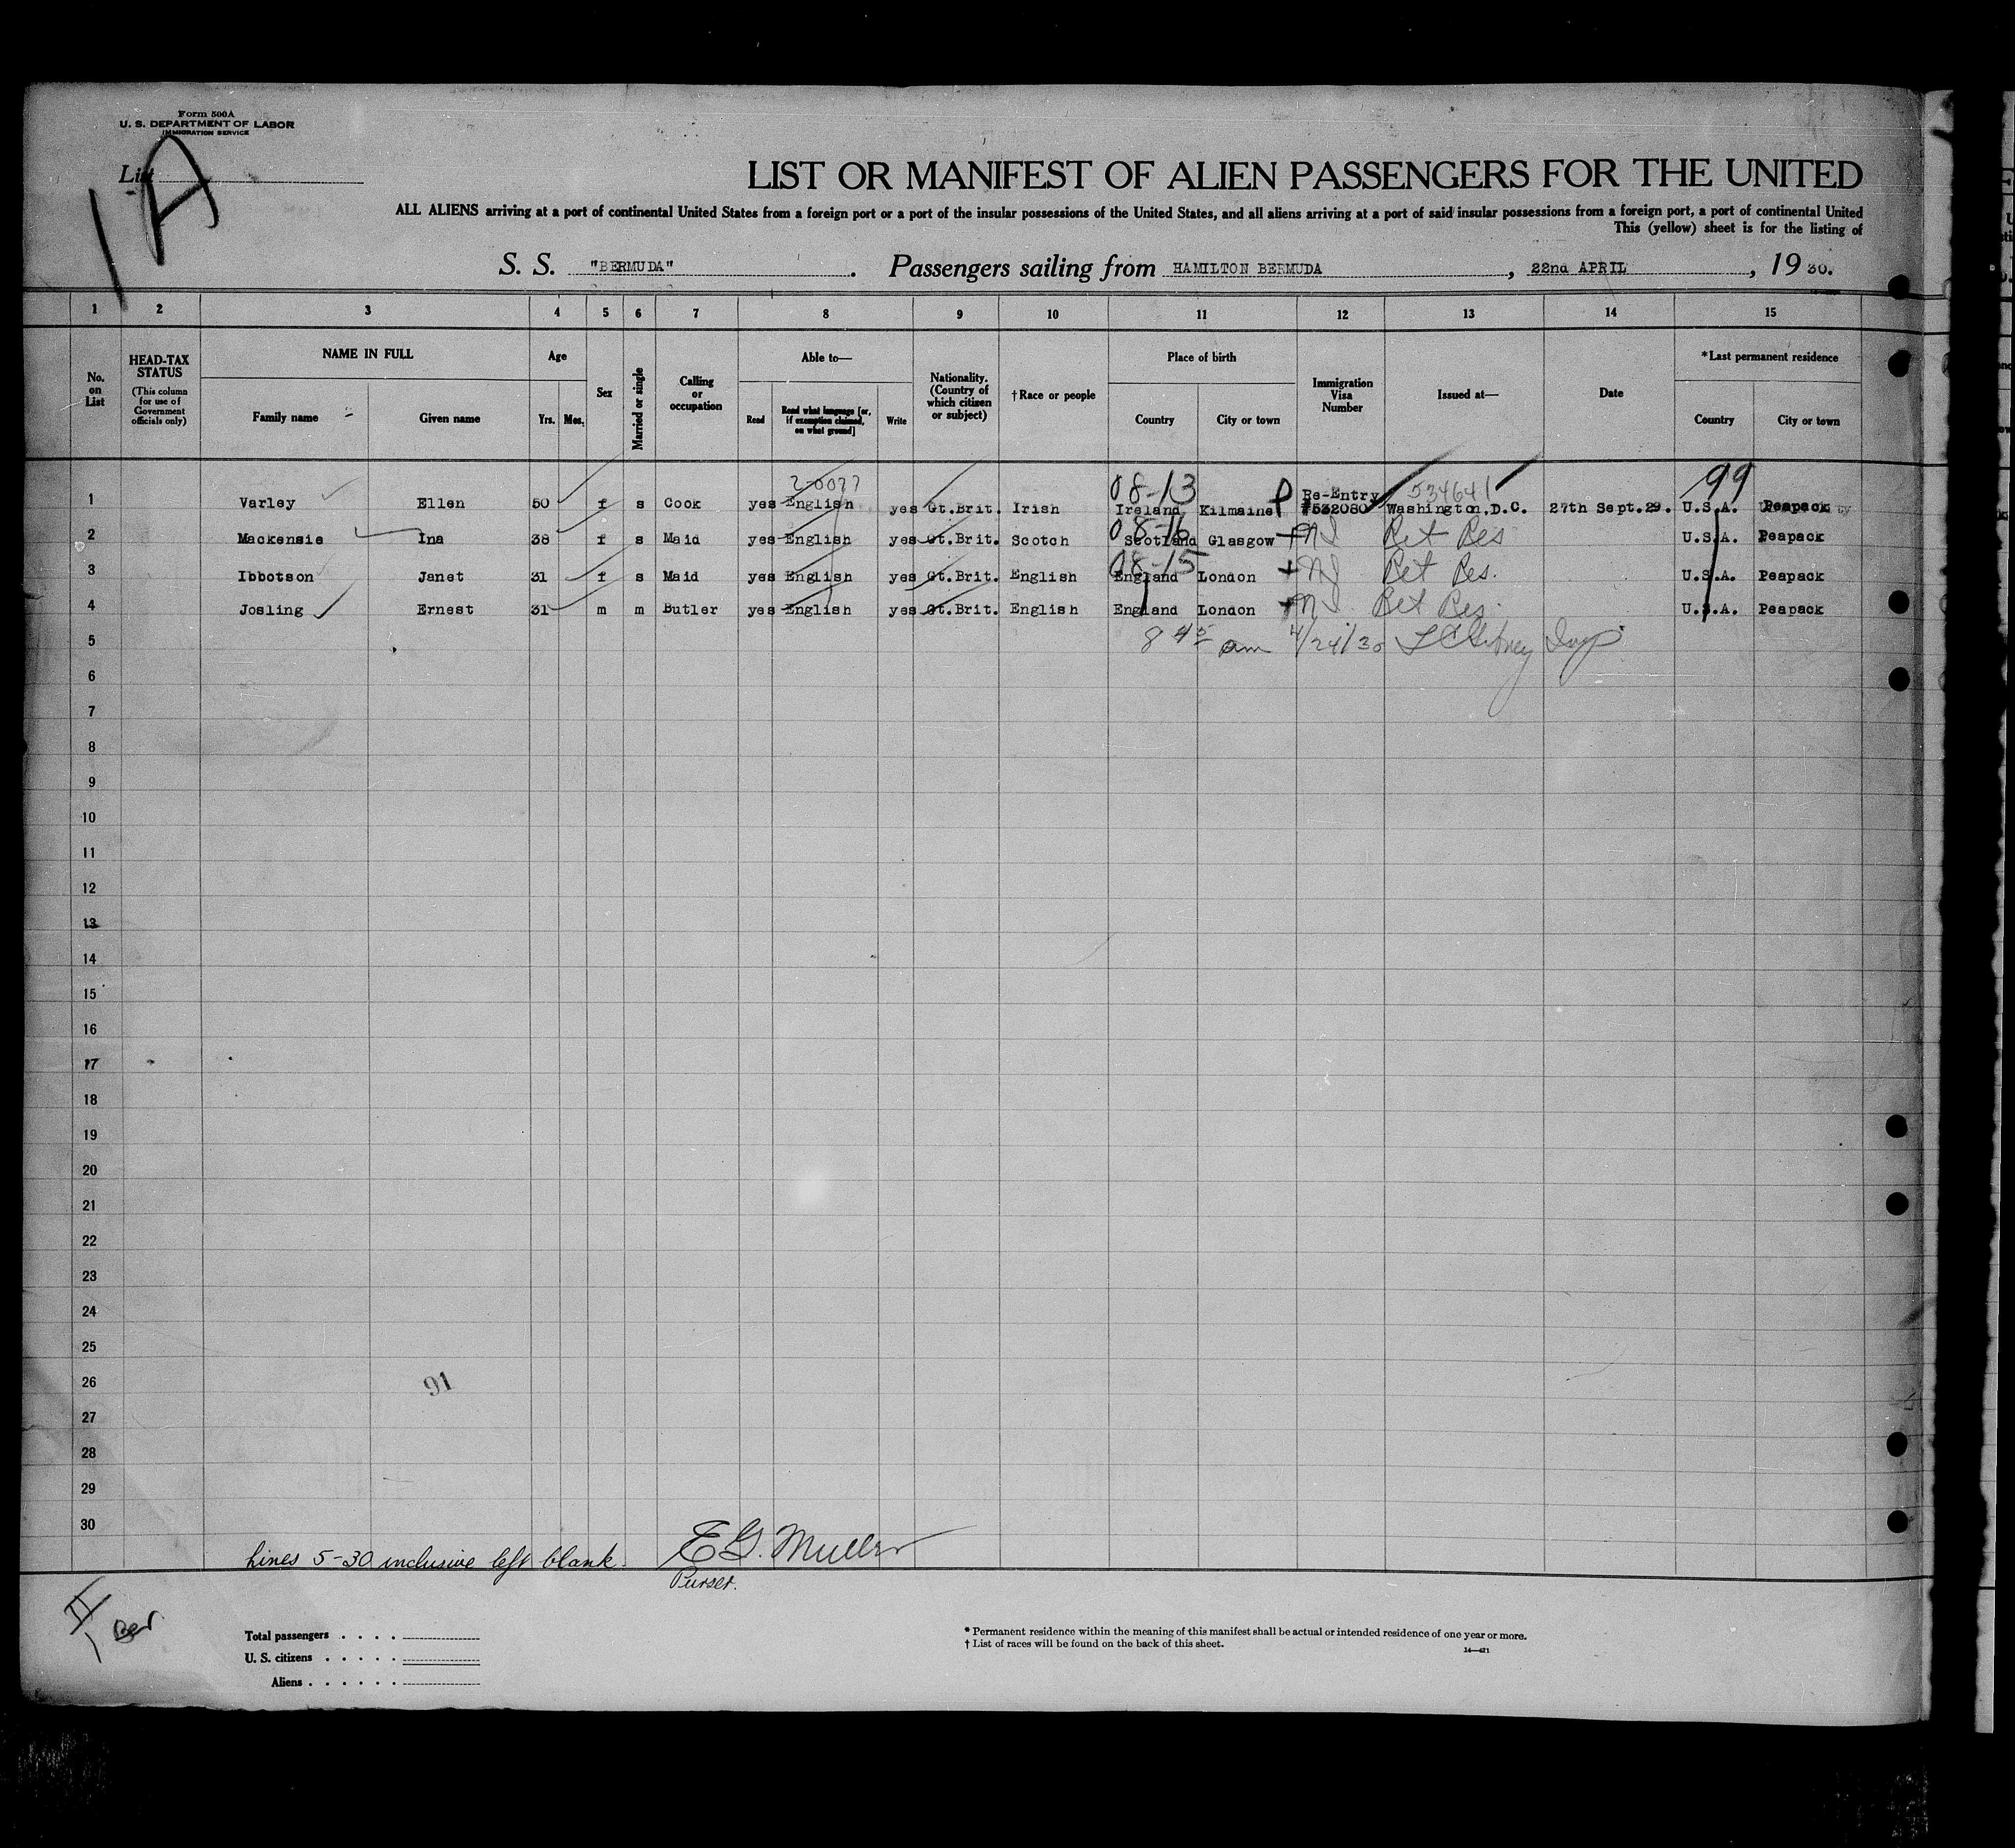 Form 500A
U. S. DEPARTMENT OF LABOR
IMMIGRATION SERVICE
List
1A
LIST OR MANIFEST OF ALIEN PASSENGERS FOR THE UNITED
ALL ALIENS arriving at a port of continental United States from a foreign port or a port of the insular possessions of the United States, and all aliens arriving at a port of said insular possessions from a foreign port, a port of continental United
This (yellow) sheet is for the listing of
S. S. "BERMUDA". Passengers sailing from HAMILTON BERMUDA, 22nd APRIL, 19 30.
1 2 3 4 5 6 7 8 9 10 11 12 13 14 15
No. on List
HEAD-TAX STATUS
(This column for use of Government officials only)
NAME IN FULL
Family name Given name
Age
Yrs. Mos.
Sex
Married or single
Calling or occupation
Able to—
Read Read what language [or, if exemption claimed, on what ground] Write
Nationality. (Country of which citizen or subject)
†Race or people
Place of birth
Country City or town
Immigration Visa Number
Issued at—
Date
*Last permanent residence
Country City or town
2-0077 08-13 534641 99
1 Varley Ellen 50 f s Cook yes English yes Gt.Brit. Irish Ireland Kilmaine P Re-Entry #532080 Washington.D.C. 27th Sept.29. U.S.A. Peapack
08-16
2 Mackensie Ina 38 f s Maid yes English yes Gt.Brit. Scotch Scotland Glasgow Ret Res U.S.A. Peapack
08-15
3 Ibbotson Janet 31 f s Maid yes English yes Gt.Brit. English England London Ret Res. U.S.A. Peapack
4 Josling Ernest 31 m m Butler yes English yes Gt.Brit. English England London Ret Res. U.S.A. Peapack
5 8 45 am 4/24/30 Insp
6
7
8
9
10
11
12
13
14
15
16
17
18
19
20
21
22
23
24
25
26 91
27
28
29
30
Lines 5-30 inclusive left blank. E G. Muller
Purser.
II
Ber
Total passengers . . . .
U. S. citizens . . . . .
Aliens . . . . . .
* Permanent residence within the meaning of this manifest shall be actual or intended residence of one year or more.
† List of races will be found on the back of this sheet.
14—421